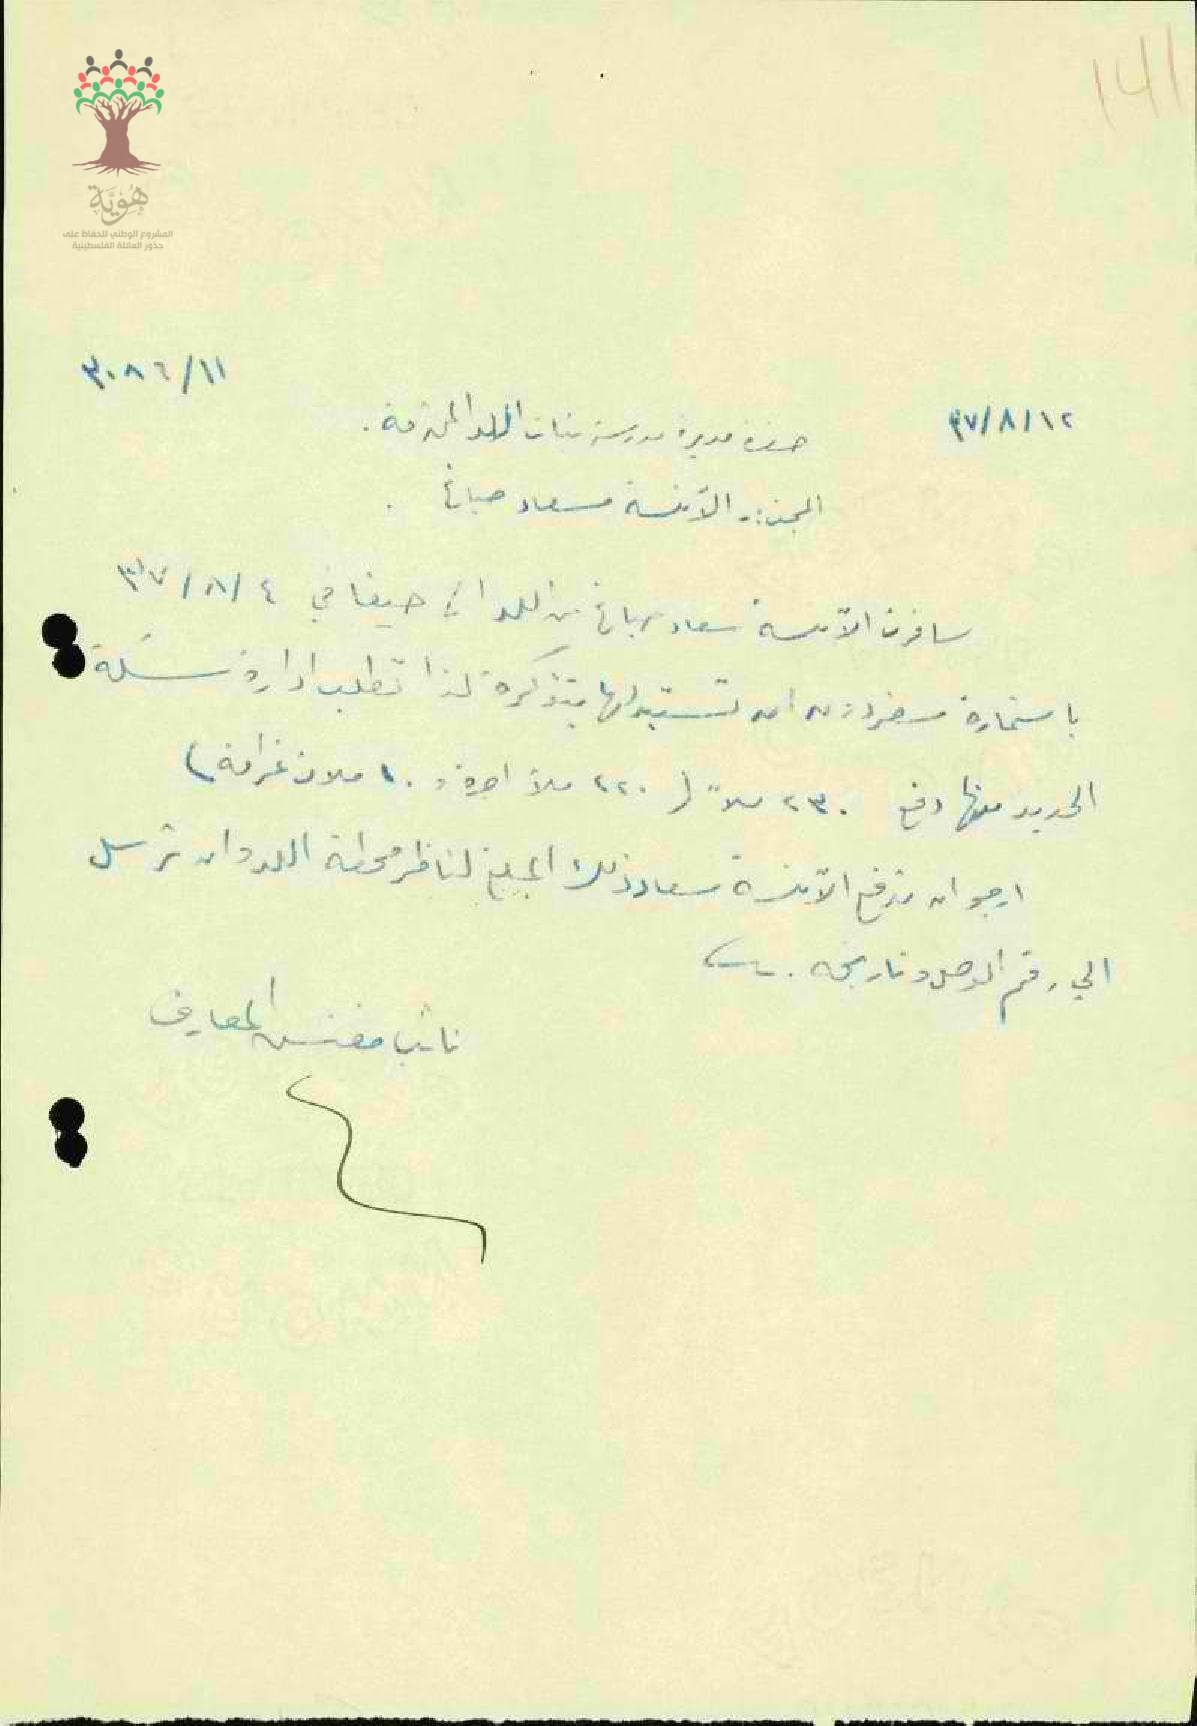 141
هُوِيَّة
المشروع الوطني للحفاظ على
جذور العائلة الفلسطينية
٣٠٨٦/١١
٣٧/٨/١٢
حضرة مديرة مدرسة بنات اللد المحترمة.
الآنسة سعاد صباغ.
سافرت الآنسة سعاد صباغ من اللد الى حيفا في ٣٧/٨/٤
باستمارة سفر دون ان تستبدلها بتذكرة لذا تطلب ادارة سكة
الحديد منها دفع ٢٣٠ ملاً (٢٢٠ ملاً اجرة و ١٠ ملات غرامة)
ارجو ان تدفع الآنسة سعاد ذلك المبلغ لناظر محطة اللد وان ترسل
الي رقم الوصل وتاريخه.
نائب مفتش المعارف